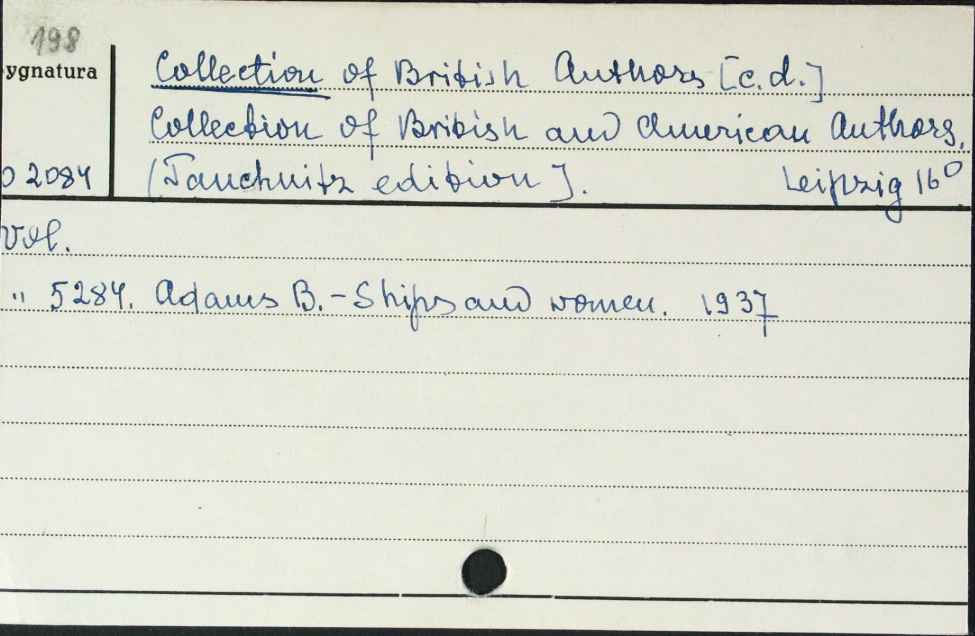 198
ygnatura
Collection of British Authors [c.d.]
Collection of British and American Authors.
2084
[Tauchnitz edition].
Leipzig 16°
Vol.
" 5284. Adams B. - Ships and women. 1937